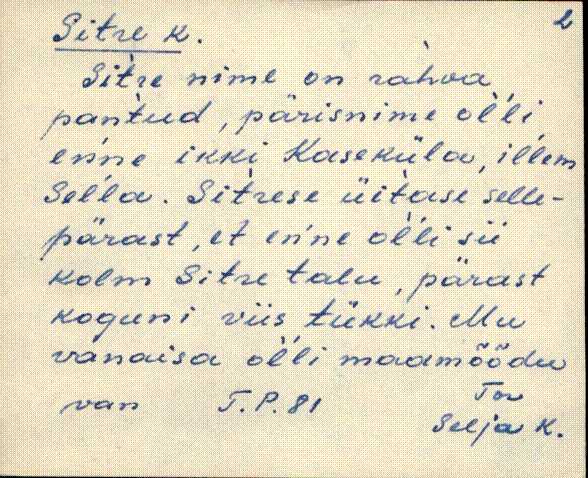 2
Sitre k.
Sitre nime on rahva
pantud, pärisnime ol'li
en'ne ikki Kaseküla, illem
Sel'la. Sitrese üitase selle-
pärast, et en'ne ol'li sii
kolm Sitre talu, pärast
koguni viis tükki. Mu
vanaisa ol'li maamõõdu
van T.P. 81
Tor
Selja K.